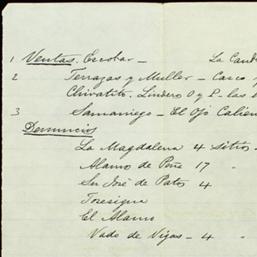 1 Ventas. Escobar — La Cand
2 Terrazas y Muller — Casco y
Chivatito. Lindero O y P. las
3 Samaniego — El Ojo Calien
Denuncios
La Magdalena 4 sitios —
Alamo de Peñe 17 "
Sn José de Patos 4
El Alamo
Vado de Vigas — 4 "